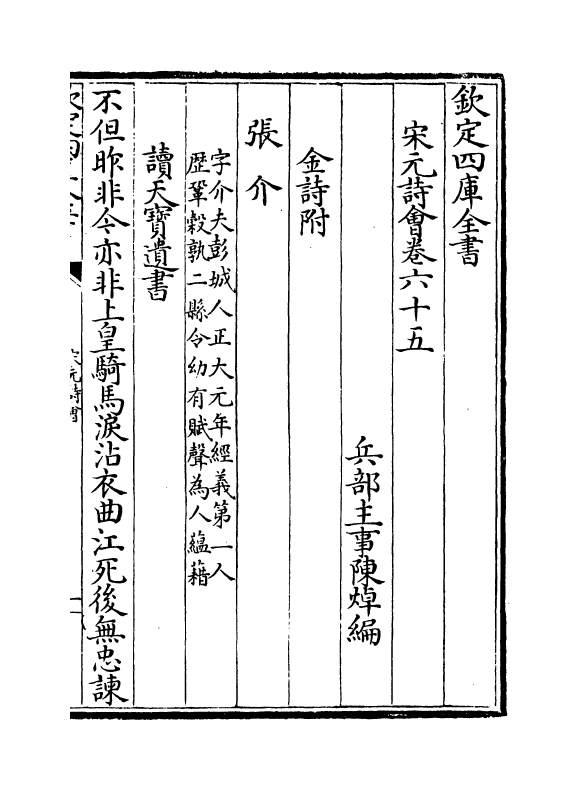 欽定四庫全書
宋元詩會卷六十五
兵部主事陳焯編
金詩附
張介
字介夫彭城人正大元年經義第一人
歷鞏穀孰二縣令幼有賦聲為人蘊藉
讀天寶遺書
不但昨非今亦非上皇騎馬淚沾衣曲江死後無忠諫
宋元詩會